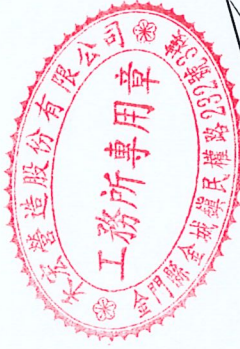 宏營造股份有限公司
工務所專用章
金門縣金城鎮民權路232號3樓